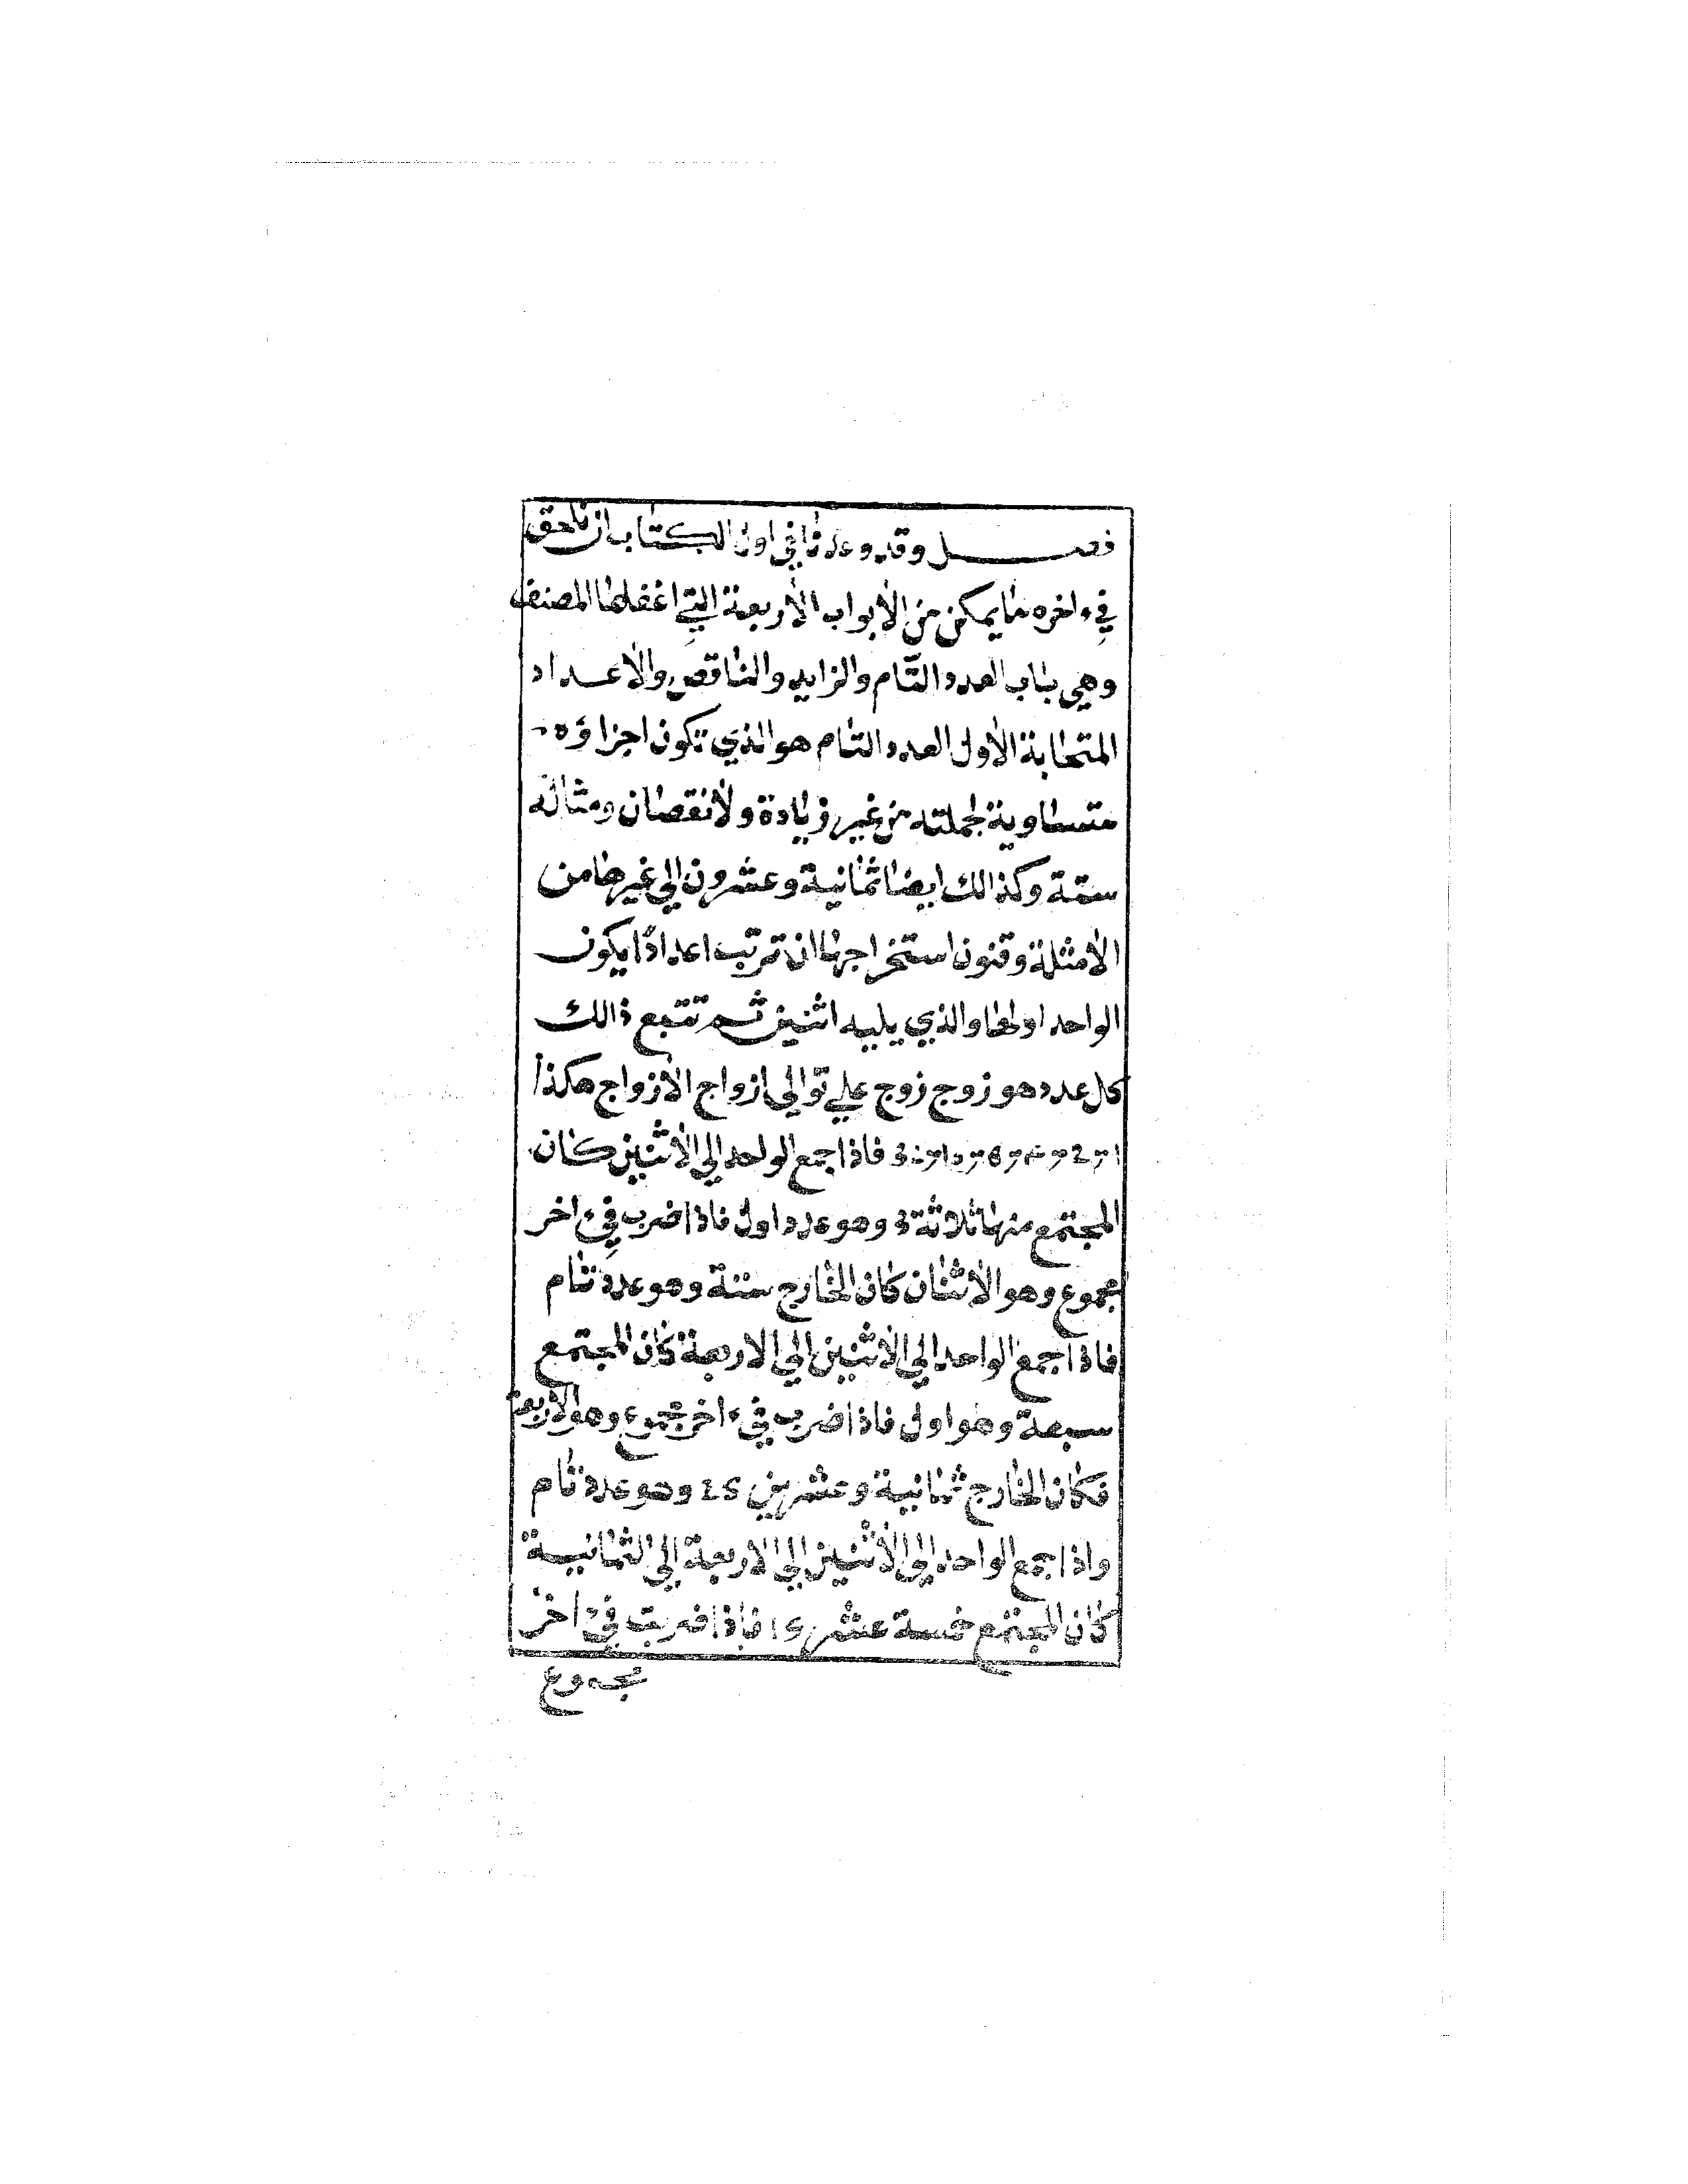 فصل وقد وعدنا في اول الكتاب ان نلحق
في ءاخره ما يمكن من الابواب الاربعة التي اغفلها المصنف
وهي باب العدد التّام والزايد والناقص والاعداد
المتحابة الاول العدد التام هو الذي تكون اجزاؤه
متساوية لجملته من غير زيادة ولا نقصان ومثاله
ستة وكذالك ايضا ثمانية وعشرون الي غيرها من
الامثلة وقنون استخراجها ان ترتب اعدادًا يكون
الواحد اولها والذي يليه اثنين ثم تتبع ذالك
كل عدد هو زوج زوج علي توالي ازواج الازواج هكذا
فاذا جمع الواحد الي الاثنين كان
المجتمع منها ثلاثة 3 وهو عدد اول فاذا ضرب في ءاخر
مجموع وهو الاثنان كان الخارج ستة وهو عدد تام
فاذا جمع الواحد الي الاثنين الي الاربعة كان المجتمع
سبعة وهو اول فاذا ضرب في ءاخر مجموع وهو الاربعة
فكان الخارج ثمانية وعشرين وهو عدد تام
واذا جمع الواحد الي الاثنين الي الاربعة الي الثمانية
كان المجتمع خمسة عشر فاذا ضربت في ءاخر
مجموع